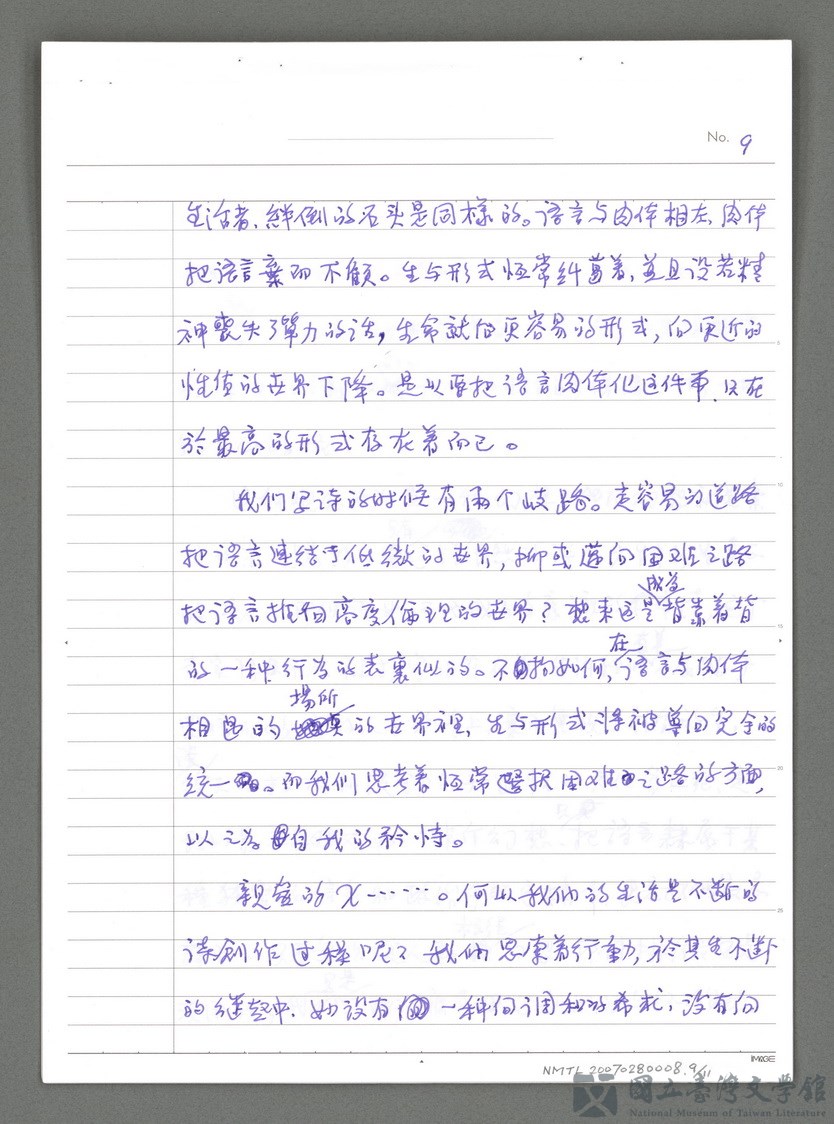 No. 9
生活者、絆倒的石头是同樣的。语言与肉体相左、肉体
把语言棄而不顧。生与形式恒常纠葛着，並且设若精
神喪失了彈力的话，生命就向更容易的形式，向更近的
性值的世界下降。是以要把语言肉体化这件事、只在
於最高的形式存在着而已。
我们写诗的时候有兩个岐路。走容易的道路
把语言連结于低微的世界，抑或邁向困难之路
成為
把语言推向高度倫理的世界？想来这是背靠着背
在
的一种行为的表裏似的。不拘如何，语言与肉体
場所
相的的世界裡，生与形式将被導向完全的
統一。而我们思考着恒常選択困难之路的方面，
以之為自我的矜恃。
親愛的X⋯⋯。何以我们的生活是不断的
诗創作过程呢？我们思索着行動，於其生不断
的继起中、如没有一种向调和的希求，没有向
IMAGE
NMTL 20070280008.9/11
國立臺灣文學館
National Museum of Taiwan Literature